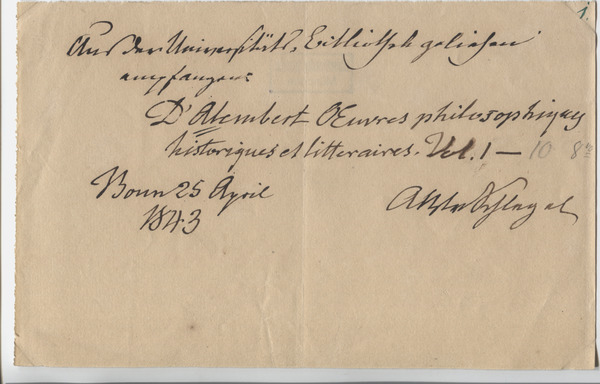 1.
Aus der Universitäts-Bibliothek geliehen
empfangen
D'Alembert Œuvres philosophiques
historiques et litteraires. Vol. 1 — 10 8º
Bonn 25 April
1843
AWvSchlegel